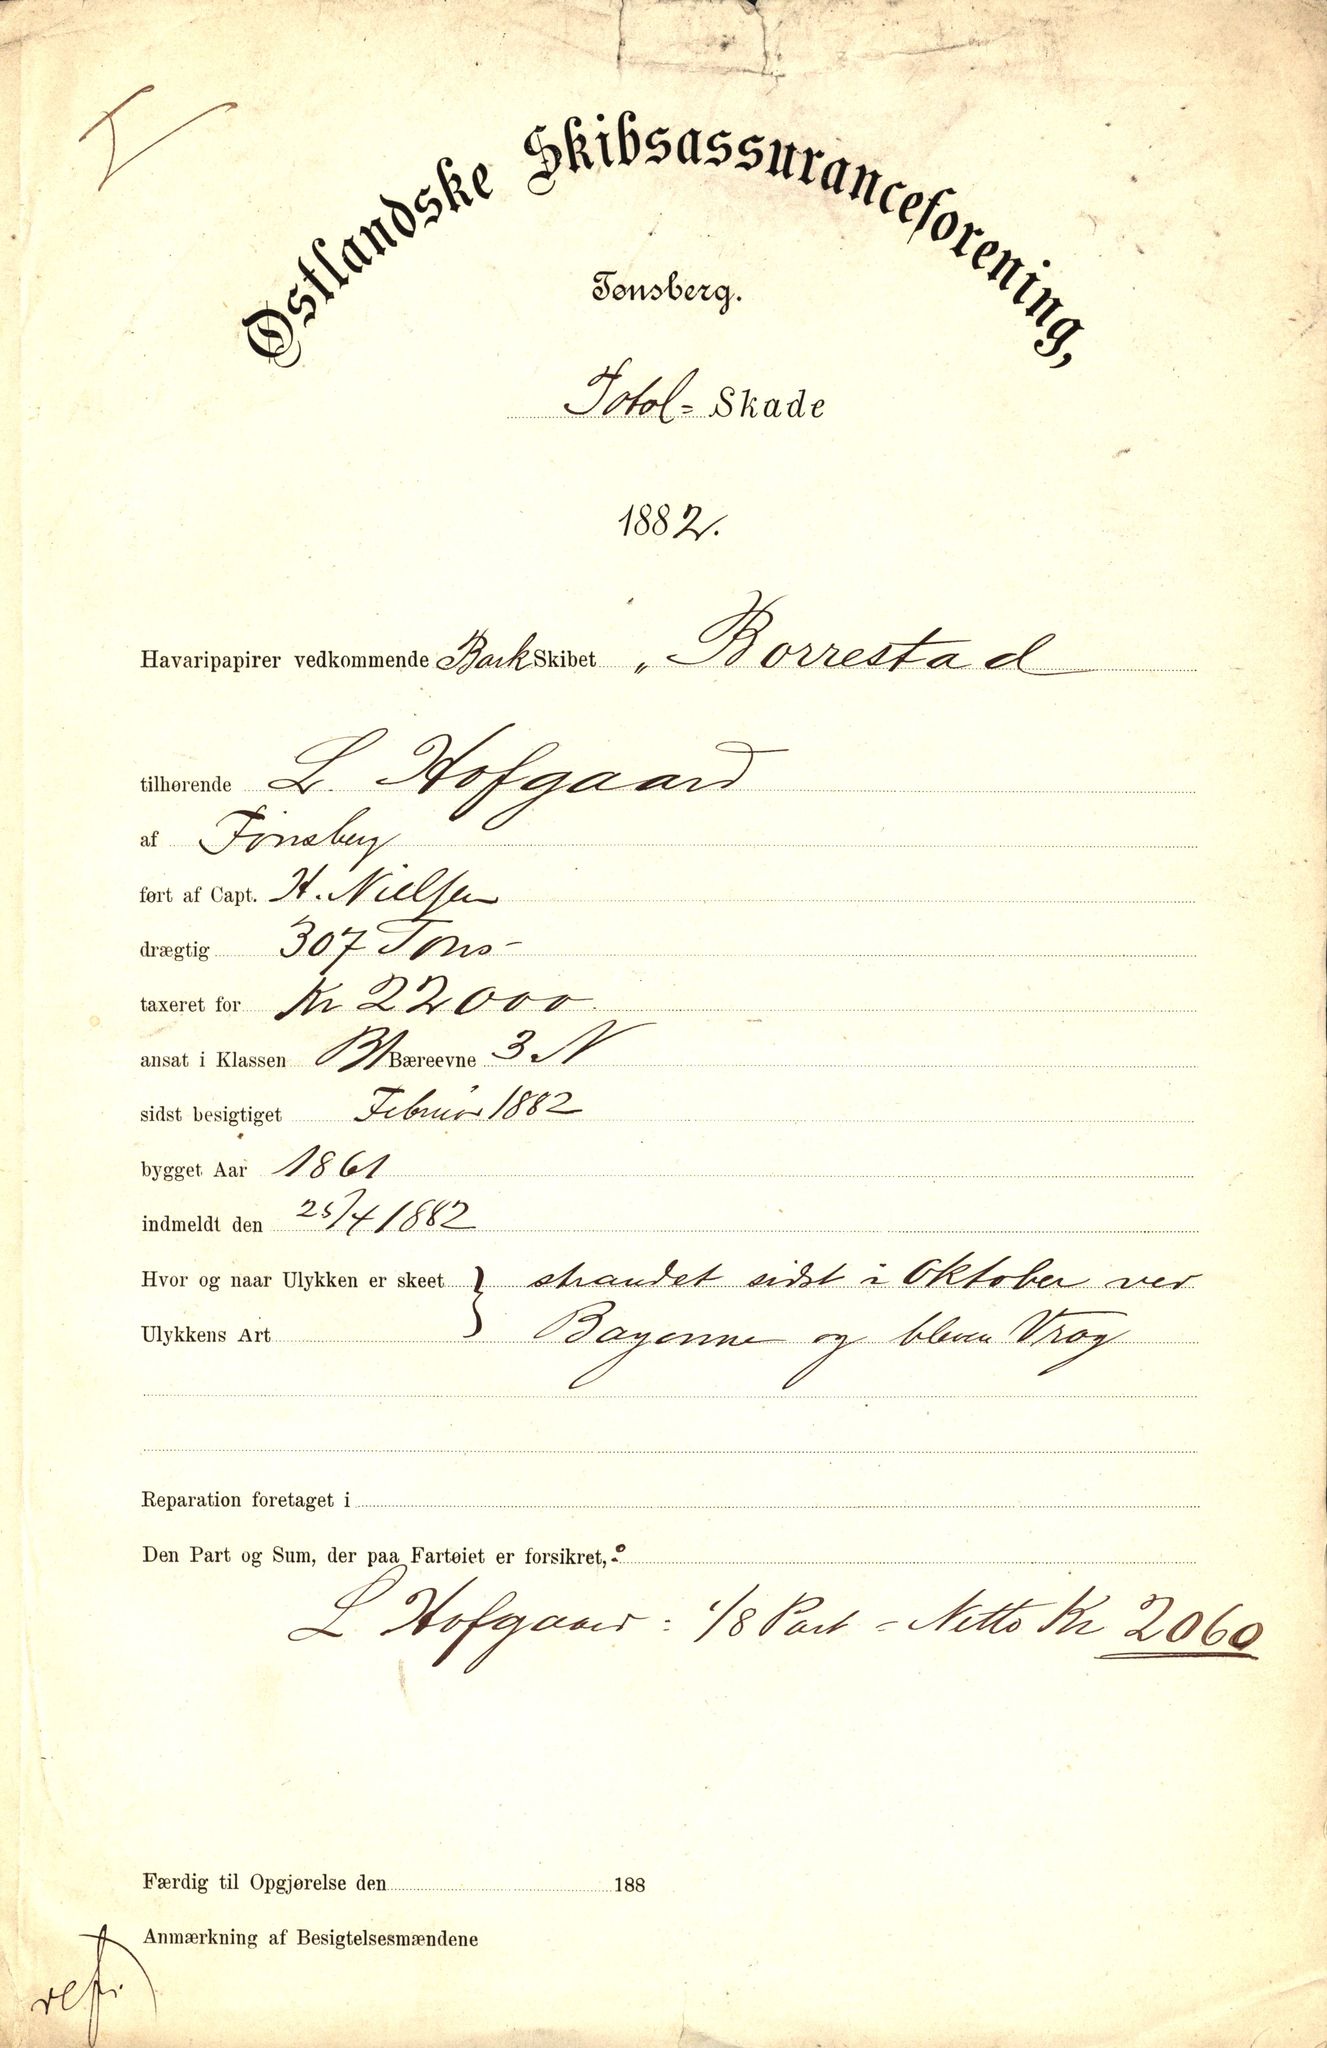 Østlandske Skibsassuranceforening,
Tønsberg.
Total= Skade
1882.
Havaripapirer vedkommende Bark Skibet „Borrestad
tilhørende L. Hofgaard
af Tønsberg
ført af Capt. H. Nielsen
drægtig 307 Tons
taxeret for Kr 22000
ansat i Klassen B1 Bæreevne 3 N
sidst besigtiget Februar 1882
bygget Aar 1861
indmeldt den 25/4 1882
Hvor og naar Ulykken er skeet } strandet sidst i Oktober ved
Ulykkens Art Bayonne og bleven Vrag
Reparation foretaget i
Den Part og Sum, der paa Fartøiet er forsikret,:
L Hofgaard : 1/8 Part = Netto Kr 2060
Færdig til Opgjørelse den 188
Anmærkning af Besigtelsesmændene